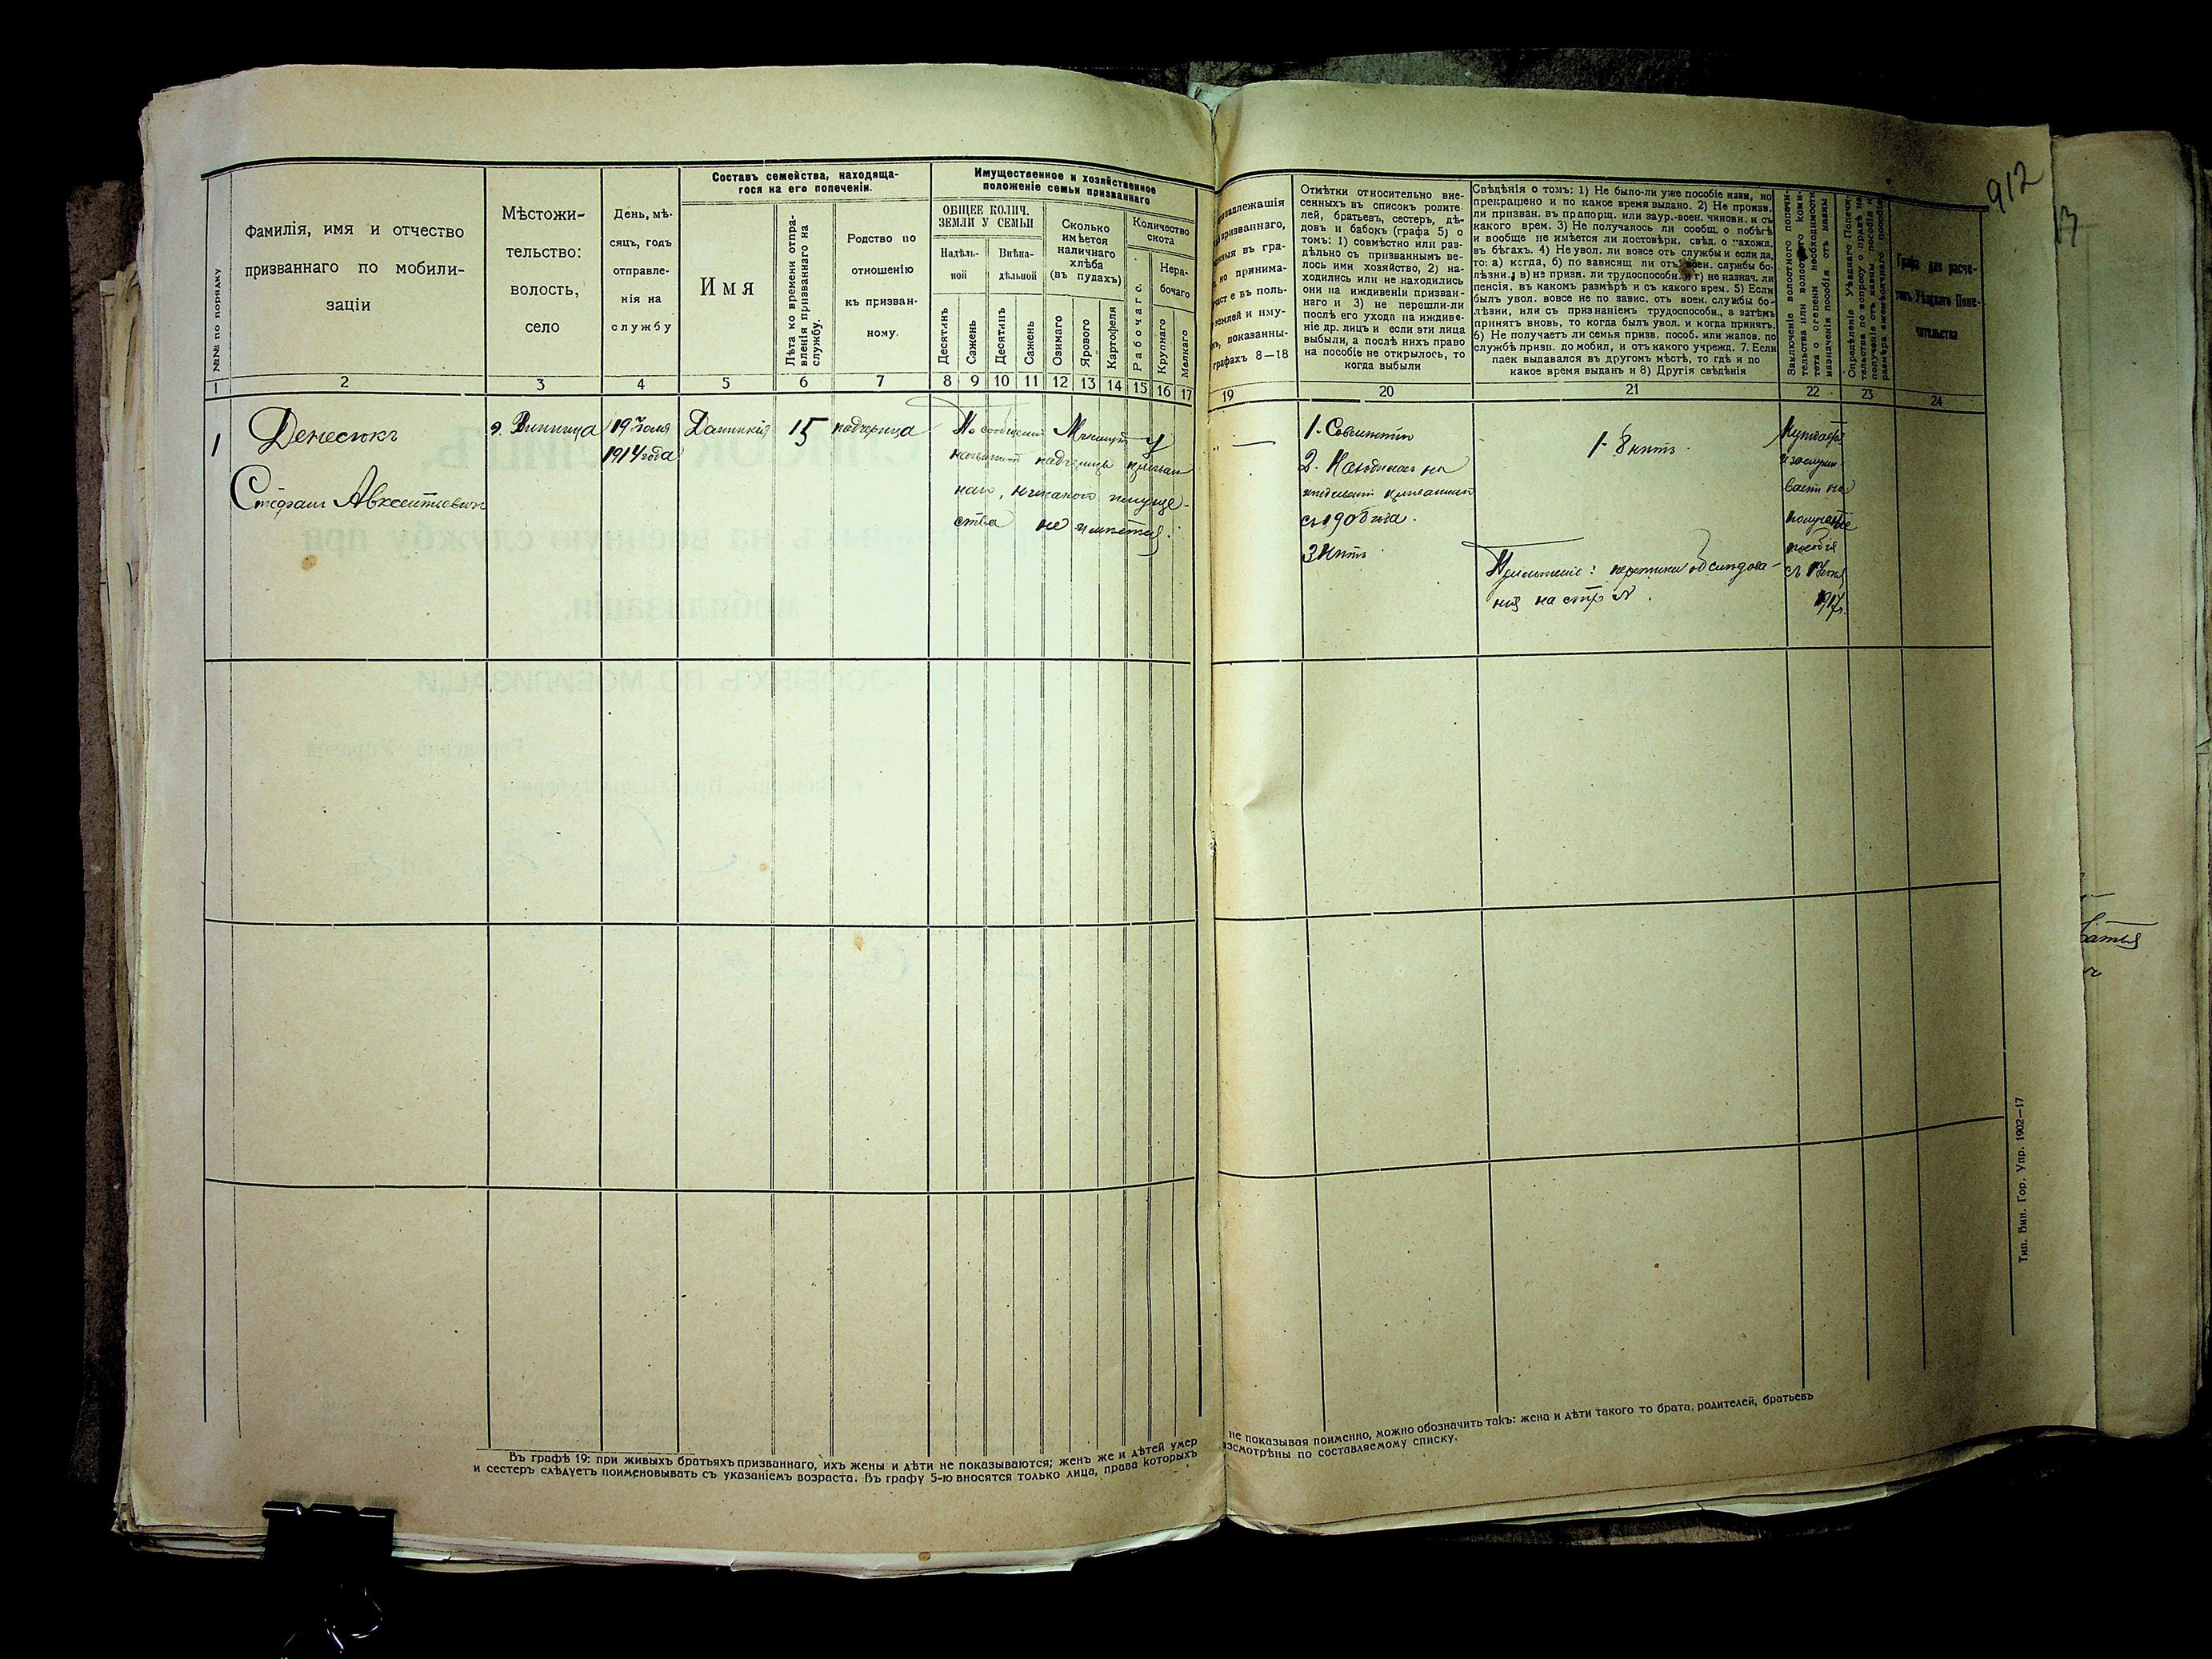 912
Составъ семейства, находяща-
гося на его попеченіи.
Имущественное и хозяйственное
положеніе семьи призваннаго
№№ по порядку
Фамилія, имя и отчество
призваннаго по мобили-
заціи
Мѣстожи-
тельство:
волость,
село
День, мѣ-
сяцъ, годъ
отправле-
нія на
службу
Имя
Лѣта ко времени отпра-
вленія призваннаго на
службу.
Родство по
отношенію
къ призван-
ному.
ОБЩЕЕ КОЛИЧ.
ЗЕМЛИ У СЕМЬИ
Надѣль-
ной
Внѣна-
дѣльной
Десятинъ
Сажень
Десятинъ
Сажень
Сколько
имѣется
наличнаго
хлѣба
(въ пудахъ)
Озимаго
Ярового
Картофеля
Количество
скота
Рабочаго.
Нера-
бочаго
Крупнаго
Мелкаго
надлежащія
призваннаго,
въ гра-
но принима-
въ поль-
землей и иму-
показанны-
графахъ 8—18
Отмѣтки относительно вне-
сенныхъ въ списокъ родите-
лей, братьевъ, сестеръ, дѣ-
довъ и бабокъ (графа 5) о
томъ: 1) совмѣстно или раз-
дѣльно съ призваннымъ ве-
лось ими хозяйство, 2) на-
ходились или не находились
они на иждивеніи призван-
наго и 3) не перешли-ли
послѣ его ухода на иждиве-
ніе др. лицъ и если эти лица
выбыли, а послѣ нихъ право
на пособіе не открылось, то
когда выбыли
Свѣдѣнія о томъ: 1) Не было-ли уже пособіе назн, но
прекращено и по какое время выдано. 2) Не произв.
ли призван. въ прапорщ. или заур.-воен. чиновн. и съ
какого врем. 3) Не получалось ли сообщ. о побѣгѣ
и вообще не имѣется ли достовѣрн. свѣд. о нахожд.
въ бѣгахъ. 4) Не увол. ли вовсе отъ службы и если да,
то: а) когда, б) по зависящ ли отъ воен. службы бо-
лѣзни, в) не призн. ли трудоспособн. и г) не назнач. ли
пенсія, въ какомъ размѣрѣ и съ какого врем. 5) Если
былъ увол. вовсе не по завис. отъ воен. службы бо-
лѣзни, или съ признаніемъ трудоспособн., а затѣмъ
принятъ вновь, то когда былъ увол. и когда принятъ.
6) Не получаетъ ли семья призв. пособ. или жалов. по
службѣ призв. до мобил, и отъ какого учрежд. 7. Если
паек выдавался въ другомъ мѣстѣ, то гдѣ и по
какое время выданъ и 8) Другія свѣдѣнія
Заключеніе волостного попечи-
тельства или волостного коми-
тета о степени необходимости
назначенія пособія отъ казны
Опредѣленіе Уѣзднаго Попечи-
тельства по вопросу о правѣ на
полученіе отъ казны пособія и
размѣра ежемѣсячнаго пособія
Графа для расче-
товъ Уѣзднаго Попе-
чительства
1 2 3 4 5 6 7 8 9 10 11 12 13 14 15 16 17 19 20 21 22 23 24
1
Денесюкъ
Стефанъ Авксентьевичъ
г. Винница
19 Іюля
1914 года
15
падчерица
По сообщенію
падчерицы
никакого имуще-
ства не имѣется.
1. Совмѣстно
2. Находилась на
иждивеніи
3 Нѣтъ
1-8 нѣтъ
на стр №
Нуждается
и заслужи-
ваетъ на
полученіе
пособія
1917г.
Въ графѣ 19: при живыхъ братьяхъ призваннаго, ихъ жены и дѣти не показываются; женъ же и дѣтей умер
не показывая поименно, можно обозначить такъ: жена и дѣти такого то брата, родителей, братьевъ
и сестеръ слѣдуетъ поименовывать съ указаніемъ возраста. Въ графу 5-ю вносятся только лица, права которыхъ
зсмотрѣны по составляемому списку.
Тип. Вин. Гор. Упр. 1902—17